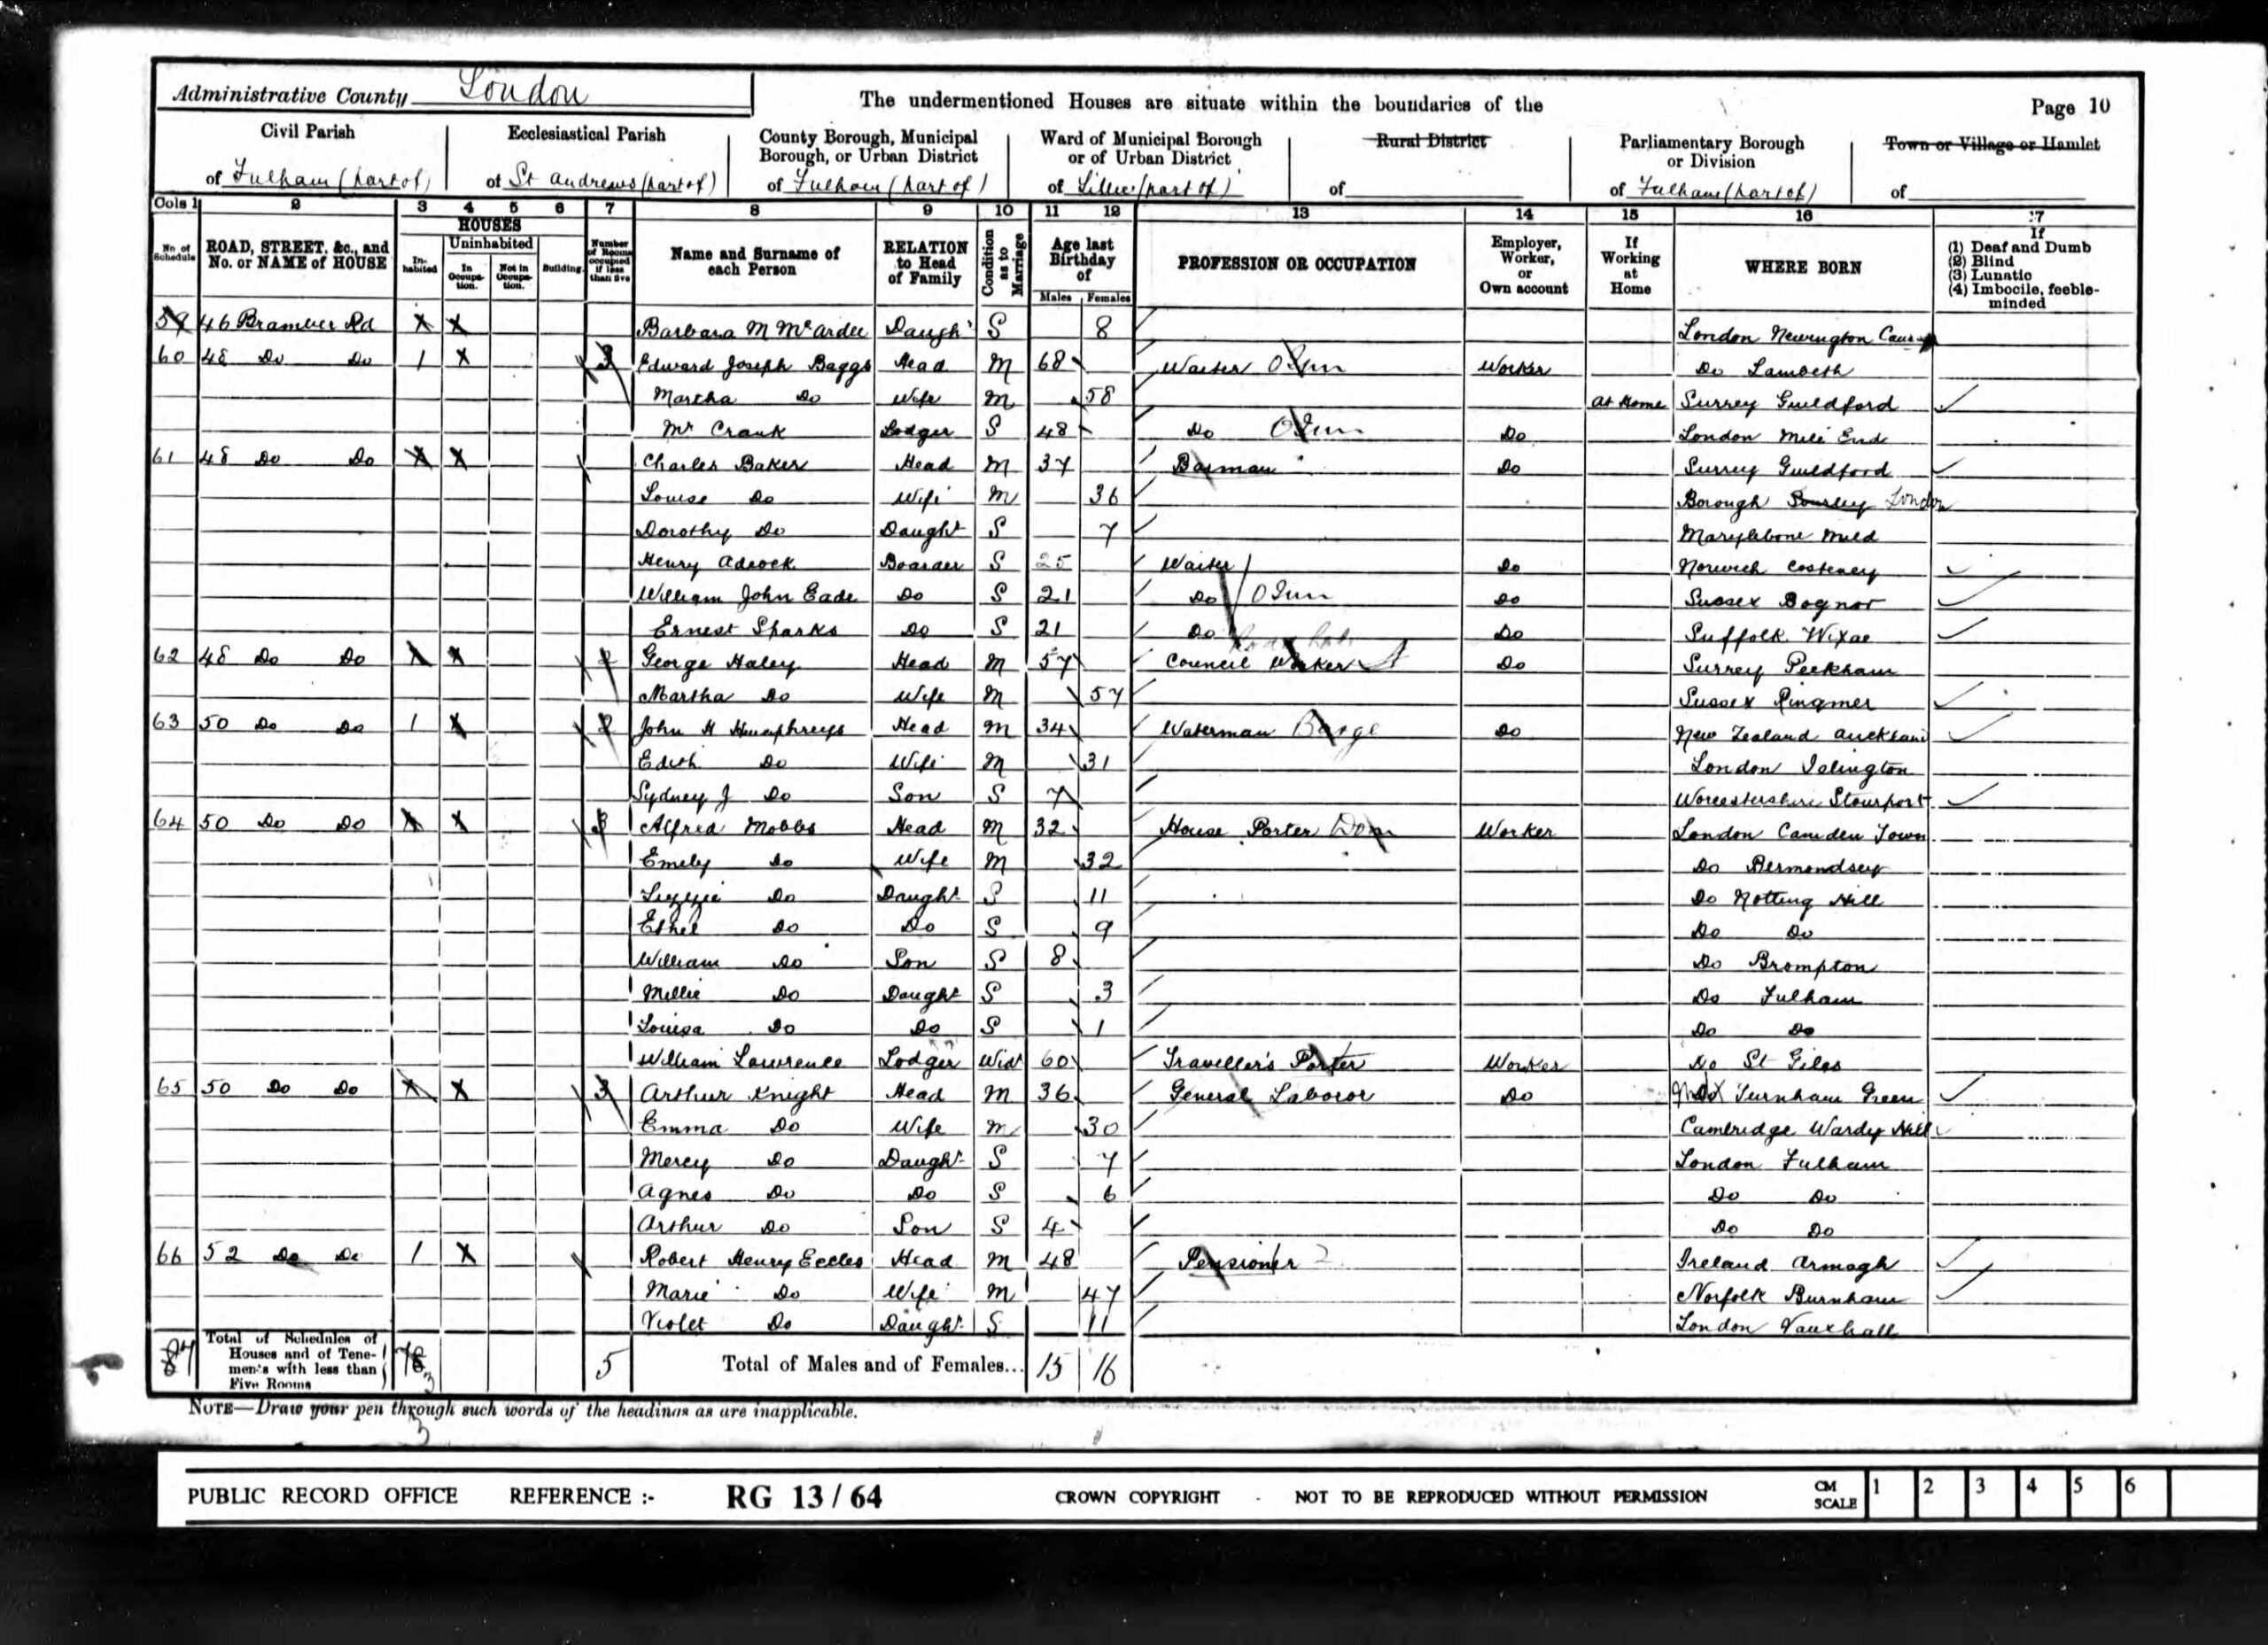 Administrative County London
The undermentioned Houses are situate within the boundaries of the
Page 10
Civil Parish
of Fulham (part of)
Ecclesiastical Parish
of St Andrews (part of)
County Borough, Municipal
Borough, or Urban District
of Fulham (part of)
Ward of Municipal Borough
or of Urban District
of Lillie (part of)
Rural District
of
Parliamentary Borough
or Division
of Fulham (part of)
Town or Village or Hamlet
of
Cols 1 2 3 4 5 6 7 8 9 10 11 12 13 14 15 16 17
No of Schedule
ROAD, STREET, &c., and
No. or NAME of HOUSE
HOUSES
In-habited
Uninhabited
In Occupa-tion.
Not in Occupa-tion.
Building
Number of Rooms occupied if less than five
Name and Surname of
each Person
RELATION
to Head
of Family
Condition as to Marriage
Age last
Birthday
of
Males Females
PROFESSION OR OCCUPATION
Employer,
Worker,
or
Own account
If
Working
at
Home
WHERE BORN
If
(1) Deaf and Dumb
(2) Blind
(3) Lunatic
(4) Imbecile, feeble-
minded
59 46 Bramber Rd X X Barbara M McArdle Daugh S 8 London Newington Caus
60 48 Do Do 1 X 3 Edward Joseph Baggs Head M 68 Waiter Worker Do Lambeth
Martha Do Wife M 58 At Home Surrey Guildford
Mr Crank Lodger S 48 Do Do London Mile End
61 48 Do Do X X Charles Baker Head M 37 Barman Do Surrey Guildford
Louise Do Wife M 36 Borough London
Dorothy Do Daught S 7 Marylebone Midd
Henry Adcock Boarder S 25 Waiter Do Norwich Costesey
William John Eade Do S 21 Do Do Sussex Bognor
Ernest Sparks Do S 21 Do Do Suffolk Wixoe
62 48 Do Do X X George Haley Head M 57 Council Worker Do Surrey Peckham
Martha Do Wife M 57 Sussex Ringmer
63 50 Do Do 1 X John H Humphreys Head M 34 Waterman Barge Do New Zealand Auckland
Edith Do Wife M 31 London Islington
Sydney J Do Son S 7 Worcestershire Stourport
64 50 Do Do X X 3 Alfred Mobbs Head M 32 House Porter Dom Worker London Camden Town
Emily Do Wife M 32 Do Bermondsey
Lizzie Do Daught S 11 Do Notting Hill
Ethel Do Do S 9 Do Do
William Do Son S 8 Do Brompton
Millie Do Daught S 3 Do Fulham
Louisa Do Do S 1 Do Do
William Lawrence Lodger Wid 60 Traveller's Porter Worker Do St Giles
65 50 Do Do X X 3 Arthur Knight Head M 36 General Laboror Do Turnham Green
Emma Do Wife M 30 Cambridge Wardy Hill
Mercy Do Daught S 7 London Fulham
Agnes Do Do S 6 Do Do
Arthur Do Son S 4 Do Do
66 52 Do Do 1 X Robert Henry Eccles Head M 48 Pensioner Ireland Armagh
Marie Do Wife M 47 Norfolk Burnham
Violet Do Daught S 11 London Vauxhall
Total of Schedules of
Houses and of Tene-
ments with less than
Five Rooms
5 Total of Males and of Females... 15 16
NOTE—Draw your pen through such words of the headings as are inapplicable.
PUBLIC RECORD OFFICE REFERENCE :- RG 13 / 64 CROWN COPYRIGHT - NOT TO BE REPRODUCED WITHOUT PERMISSION CM SCALE 1 2 3 4 5 6